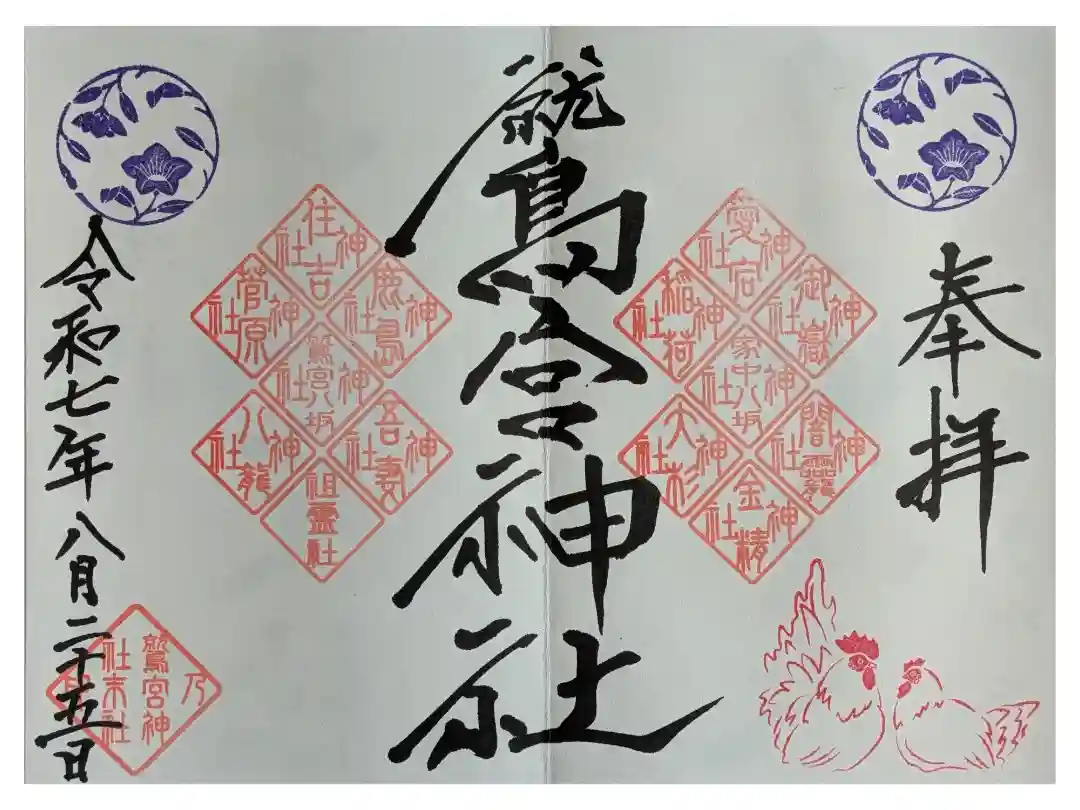 奉拝
鷲宮神社
令和七年八月二十五日
愛宕神社
御嶽神社
稲荷神社
家中八坂神社
闇龗神社
大杉神社
金精神社
住吉神社
鹿島神社
菅原神社
鷲宮八坂神社
吾妻神社
八龍神社
祖霊社
鷲宮神社末社乃印